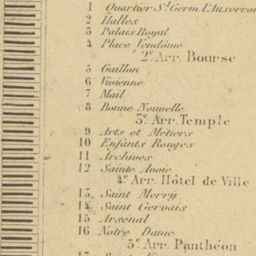 1 Quartier St. Germ. L'Auxerrois
2 Halles
3 Palais Royal
4 Place Vendôme
2e Arr. Bourse
5 Gaillon
6 Vivienne
7 Mail
8 Bonne Nouvelle
3e Arr. Temple
9 Arts et Metiers
10 Enfants Rouges
11 Archives
12 Sainte Avoie
4e Arr. Hôtel de Ville
13 Saint Merry
14 Saint Gervais
15 Arsenal
16 Notre Dame
5e Arr. Panthéon